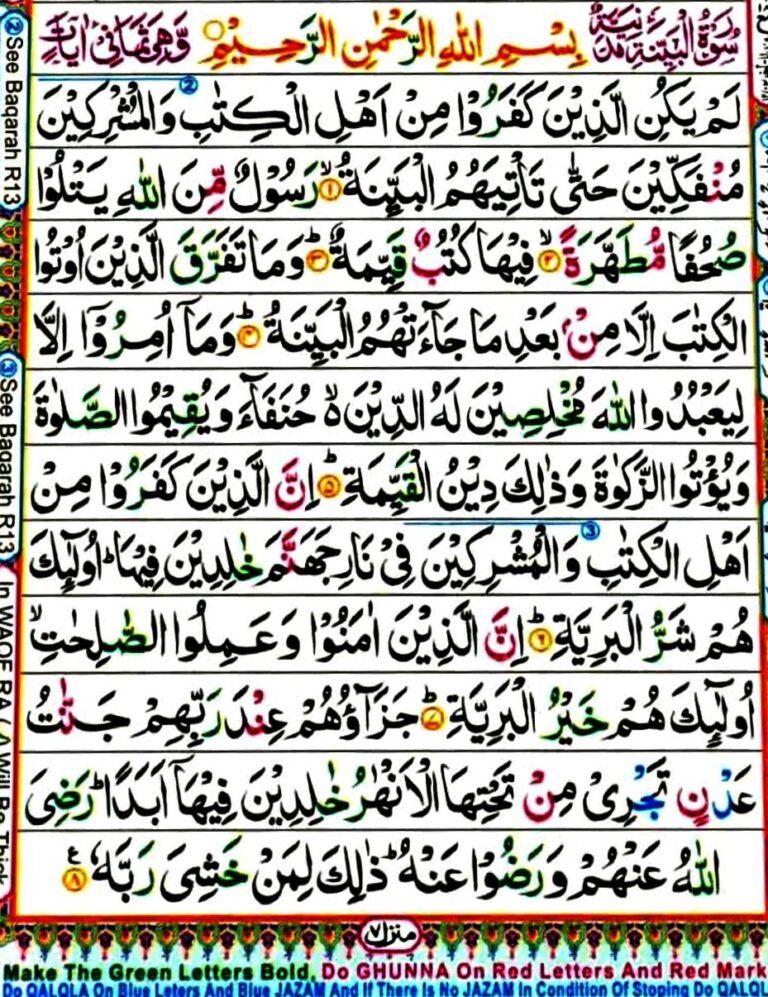 سُوْرَةُ الْبَيِّنَةِ مَدَنِيَّةٌ بِسْمِ اللهِ الرَّحْمٰنِ الرَّحِيْمِ وَهِيَ ثَمَانِيْ اٰيَاتٍ
لَمْ يَكُنِ الَّذِيْنَ كَفَرُوْا مِنْ اَهْلِ الْكِتٰبِ وَالْمُشْرِكِيْنَ
مُنْفَكِّيْنَ حَتّٰى تَاْتِيَهُمُ الْبَيِّنَةُ ۙ۱ رَسُوْلٌ مِّنَ اللهِ يَتْلُوْا
صُحُفًا مُّطَهَّرَةً ۙ۲ فِيْهَا كُتُبٌ قَيِّمَةٌ ؕ۳ وَمَا تَفَرَّقَ الَّذِيْنَ اُوْتُوا
الْكِتٰبَ اِلَّا مِنْۢ بَعْدِ مَا جَآءَتْهُمُ الْبَيِّنَةُ ؕ۴ وَمَاۤ اُمِرُوْۤا اِلَّا
لِيَعْبُدُوا اللهَ مُخْلِصِيْنَ لَهُ الدِّيْنَ ۙ۬ حُنَفَآءَ وَيُقِيْمُوا الصَّلٰوةَ
وَيُؤْتُوا الزَّكٰوةَ وَذٰلِكَ دِيْنُ الْقَيِّمَةِ ؕ۵ اِنَّ الَّذِيْنَ كَفَرُوْا مِنْ
اَهْلِ الْكِتٰبِ وَالْمُشْرِكِيْنَ فِيْ نَارِ جَهَنَّمَ خٰلِدِيْنَ فِيْهَا ؕ اُولٰٓئِكَ
هُمْ شَرُّ الْبَرِيَّةِ ؕ۶ اِنَّ الَّذِيْنَ اٰمَنُوْا وَعَمِلُوا الصّٰلِحٰتِ ۙ
اُولٰٓئِكَ هُمْ خَيْرُ الْبَرِيَّةِ ؕ۷ جَزَآؤُهُمْ عِنْدَ رَبِّهِمْ جَنّٰتُ
عَدْنٍ تَجْرِيْ مِنْ تَحْتِهَا الْاَنْهٰرُ خٰلِدِيْنَ فِيْهَاۤ اَبَدًا ؕ رَضِيَ
اللهُ عَنْهُمْ وَرَضُوْا عَنْهُ ؕ ذٰلِكَ لِمَنْ خَشِيَ رَبَّهٗ ۸ ع
منزل ۷
② See Baqarah R13
③ See Baqarah R13
In WAQF RA Will Be Thick
②
③
Make The Green Letters Bold, Do GHUNNA On Red Letters And Red Mark
Do QALQLA On Blue Leters And Blue JAZAM And If There Is No JAZAM In Condition Of Stoping Do QALQL